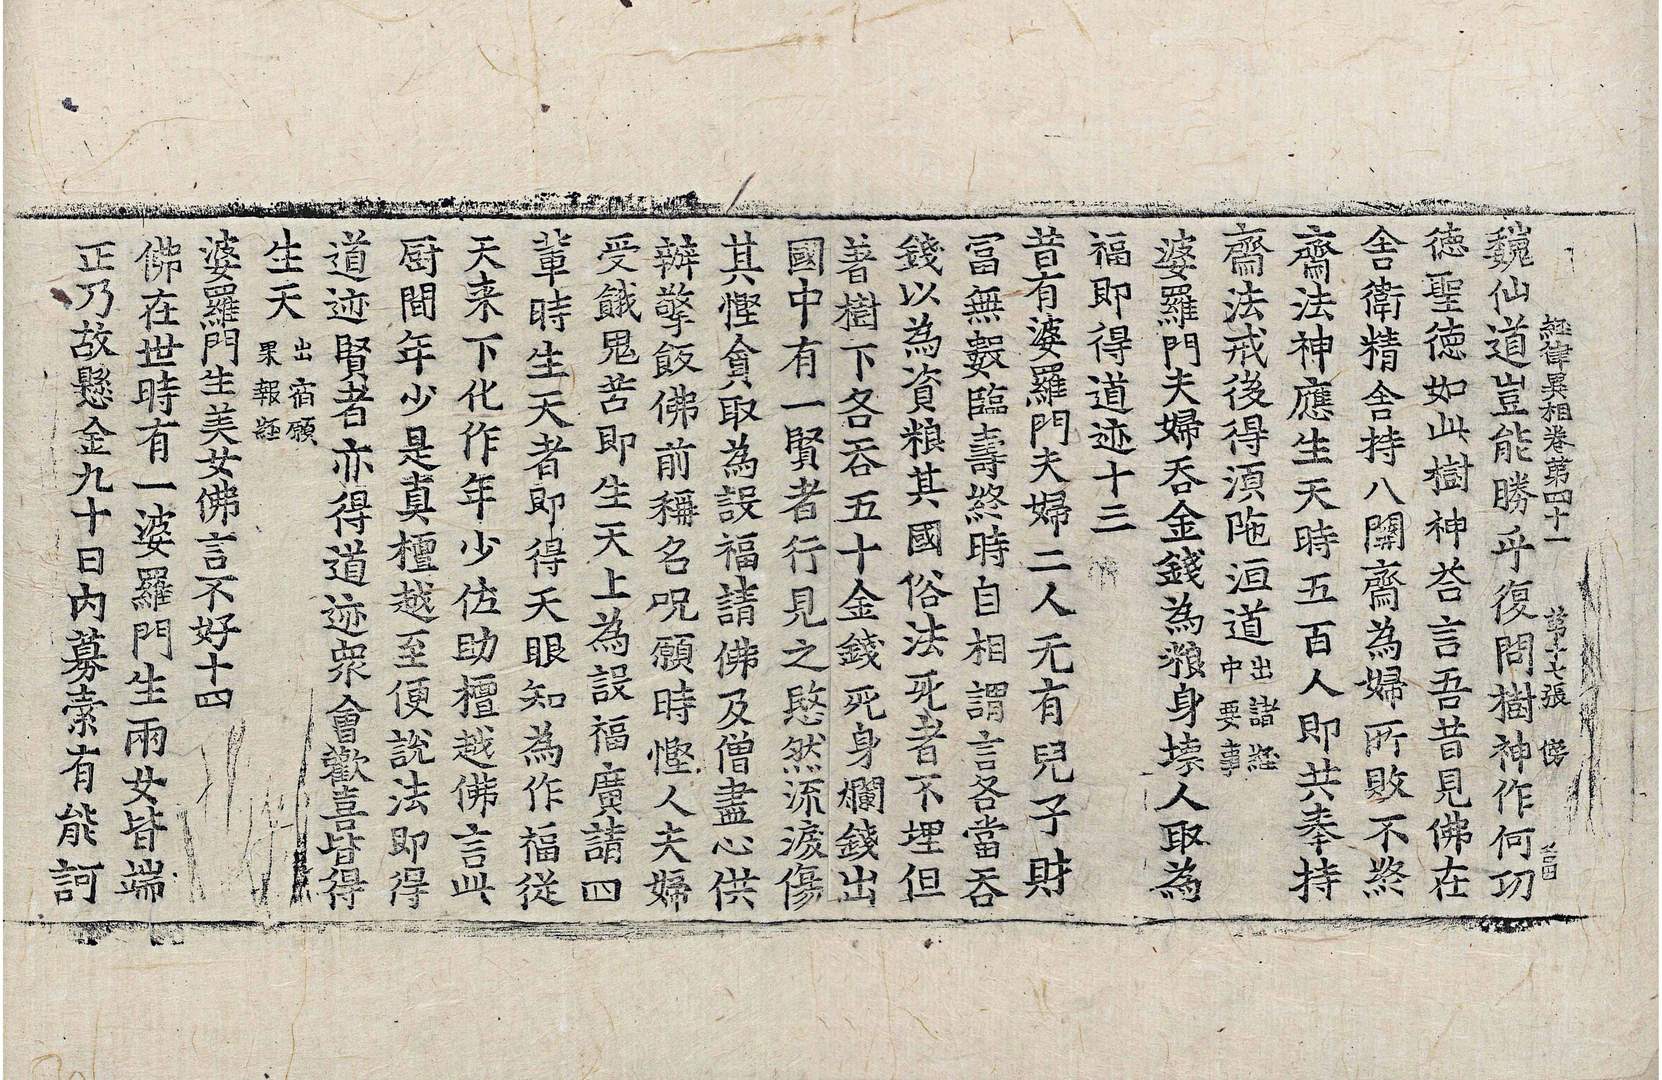 經律異相卷第四十一 第十七張 傍
巍仙道豈能勝乎復問樹神作何功
德聖德如此樹神荅言吾昔見佛在
舍衛精舍持八關齋為婦所敗不終
齋法神應生天時五百人即共奉持
齋法戒後得湏陁洹道出諸經中要事
婆羅門夫婦吞金錢為粮身壊人取為
福即得道迹十三
昔有婆羅門夫婦二人无有兒子財
冨無數臨壽終時自相謂言各當吞
錢以為資粮其國俗法死者不埋但
著樹下各吞五十金錢死身爛錢出
國中有一賢者行見之愍然流淚傷
其慳貪取為設福請佛及僧盡心供
辦擎飯佛前稱名呪願時慳人夫婦
受餓鬼苦即生天上為設福廣請四
輩時生天者即得天眼知為作福従
天来下化作年少佐助檀越佛言此
厨間年少是真檀越至便說法即得
道迹賢者亦得道迹衆會歡喜皆得
生天出宿願果報經
婆羅門生美女佛言不好十四
佛在世時有一婆羅門生兩女皆端
正乃故懸金九十日内募索有能訶